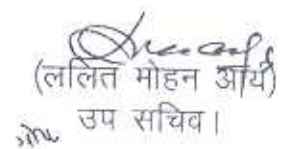 (ललित मोहन आर्य)
उप सचिव।